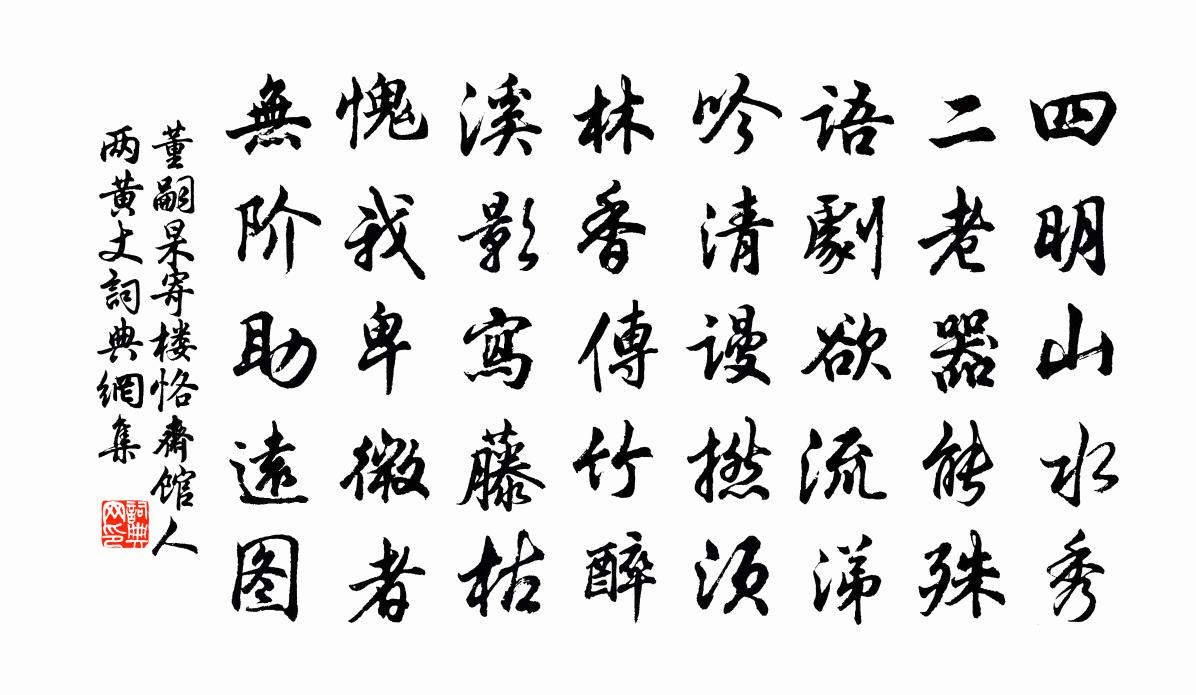 四明山水秀
二老器能殊
語劇欲流涕
吟清謾撚須
林香傳竹醉
溪影寫藤枯
愧我卑微者
無阶助遠图
董嗣杲寄楼恪齋馆人
两黄丈詞典網集
詞典
网印